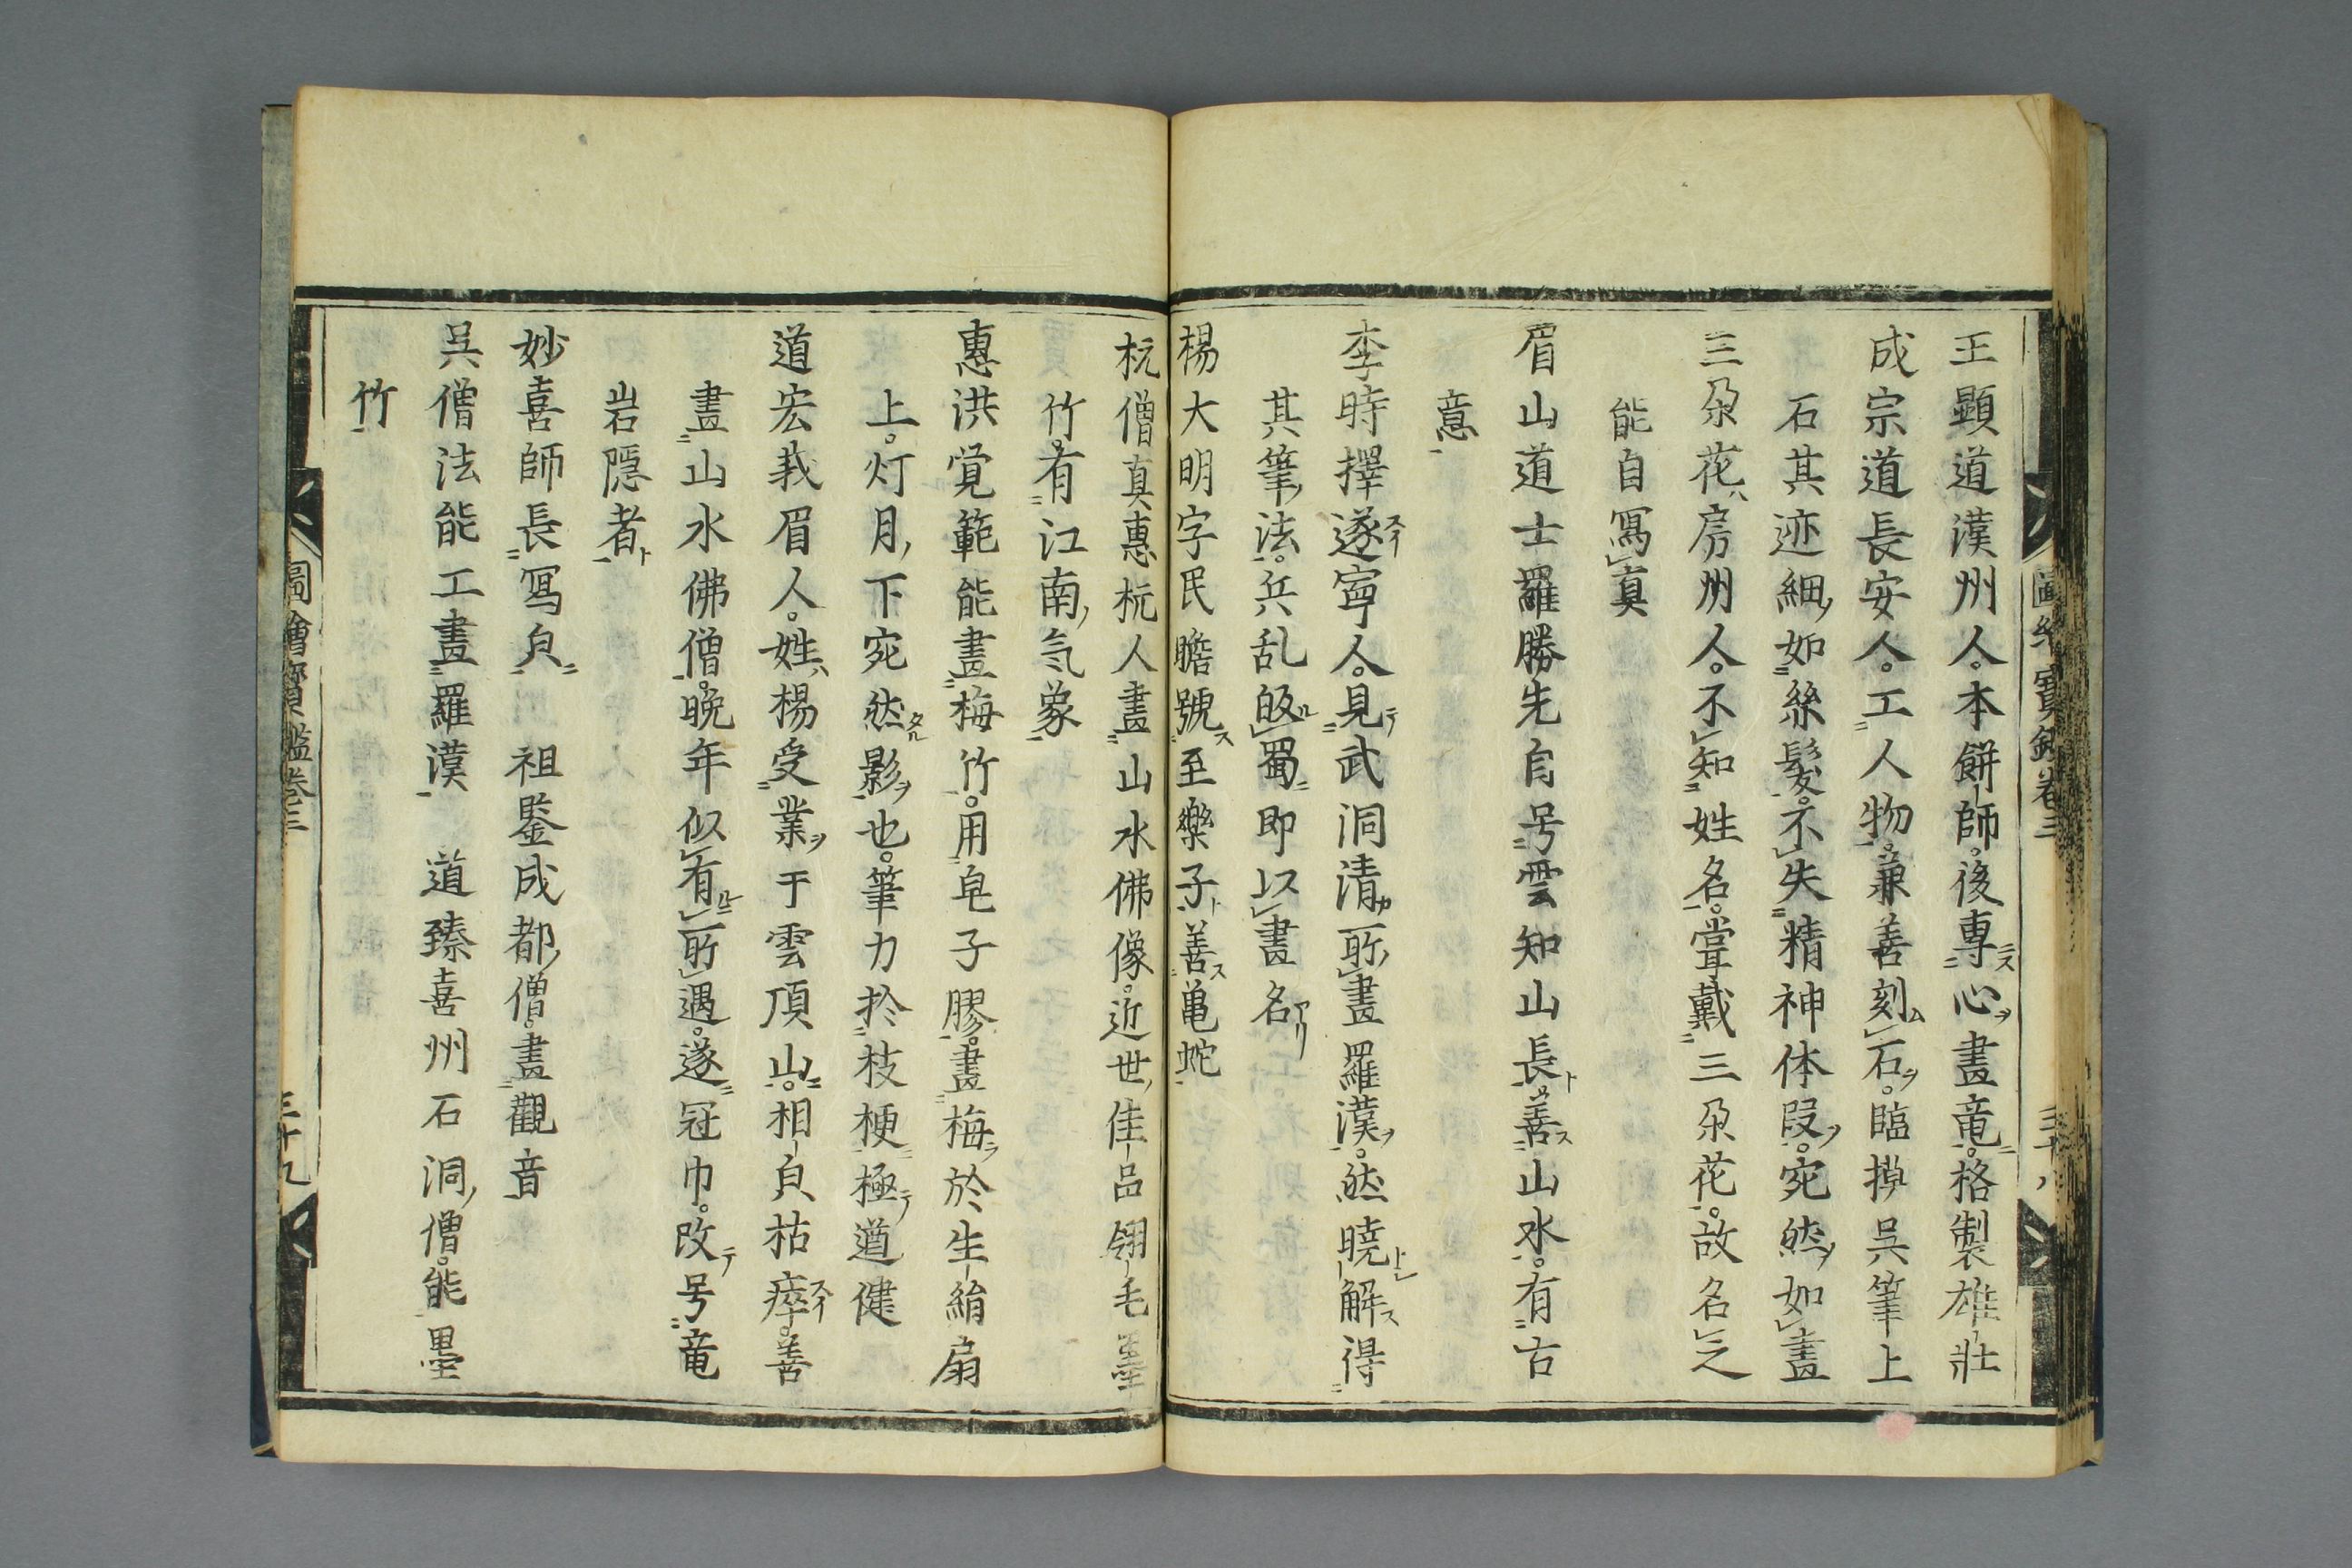 圖繪寳鑑卷三
三十八
王顯道漢州人。本餅師。後專心畫竜。格製雄壯
成宗道長安人。工人物。兼善刻石。臨摸吳筆上
石其迹細如絲髮。不失精神体段。宛然如畫
三朶花房州人。不知姓名。甞戴三朶花。故名之
能自冩真
眉山道士羅勝先自号雲知山長。善山水。有古
意
李時擇遂寧人。見武洞清所畫羅漢。然曉解得
其筆法。兵乱皈蜀即以畫名
楊大明字民瞻號至樂子善亀蛇
杭僧真惠杭人畫山水佛像。近世佳品翎毛墨
竹。有江南氣象
惠洪覚範能畫梅竹。用皂子膠。畫梅於生絹扇
上。灯月下宛然影也。筆力扵枝梗極遒健
道宏峩眉人。姓楊受業于雲頂山。相皃枯瘁。善
畫山水佛僧。晩年似有所遇。遂冠巾。改号竜
岩隠者
妙喜師長冩皃　祖鍳成都僧。畫觀音
吳僧法能工畫羅漢　道臻喜州石洞僧。能墨
竹
圖繪寳鑑卷三
三十九